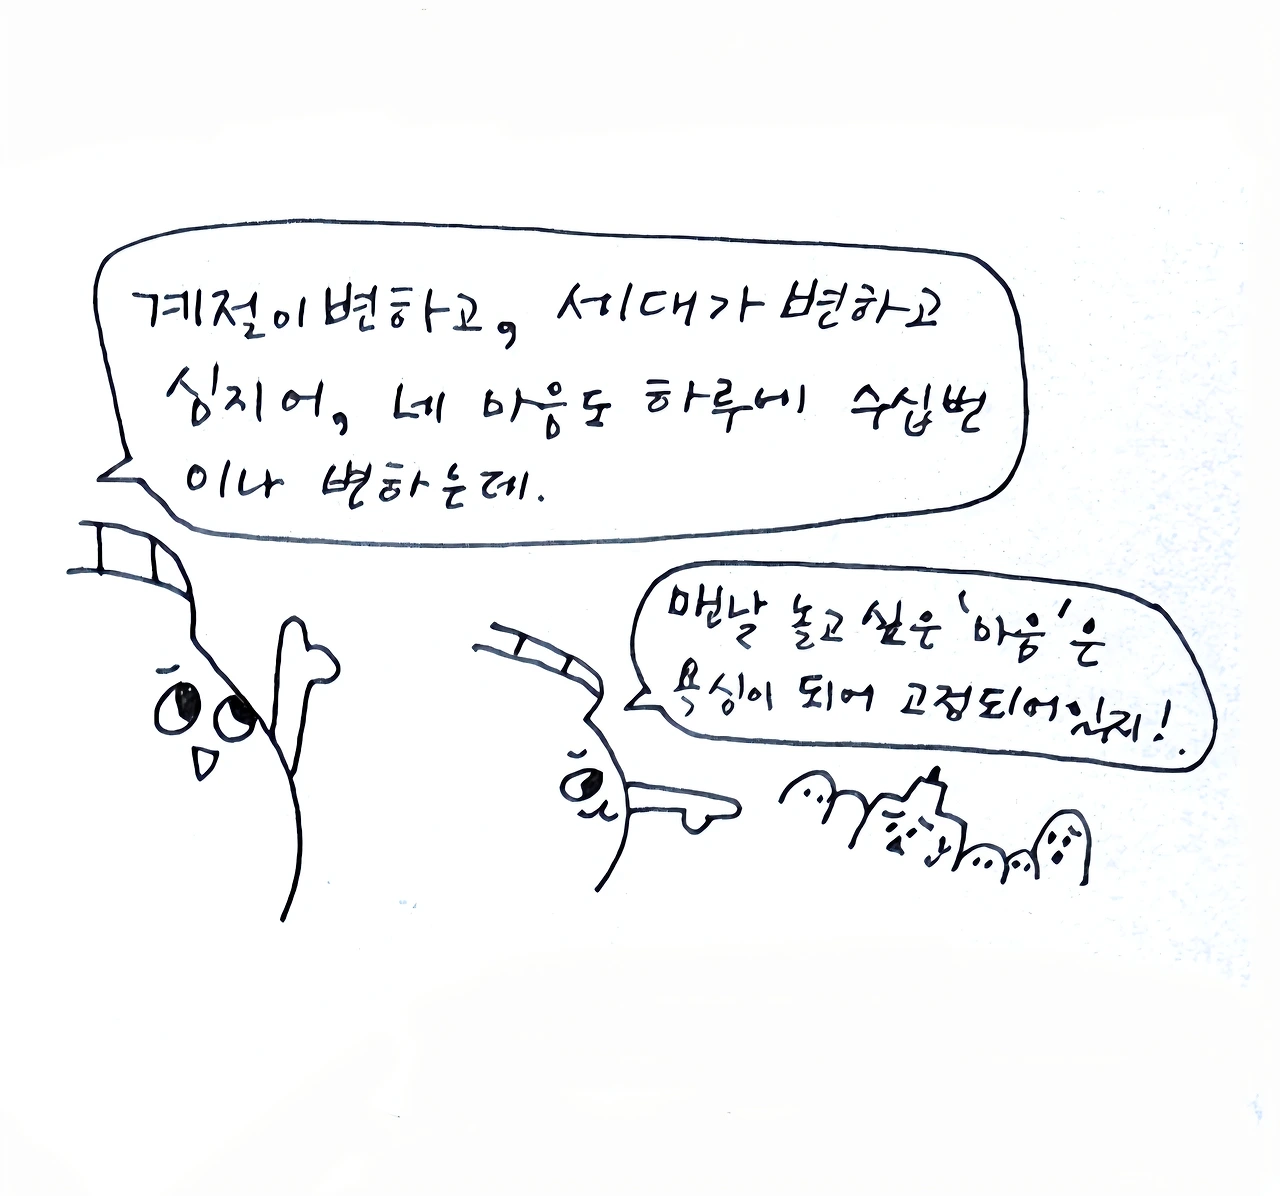 계절이 변하고, 세대가 변하고
심지어, 네 마음도 하루에 수십번
이나 변하는데.
매번날 놀고 싶은 '마음'은
욕심이 되어 고정되어있지!